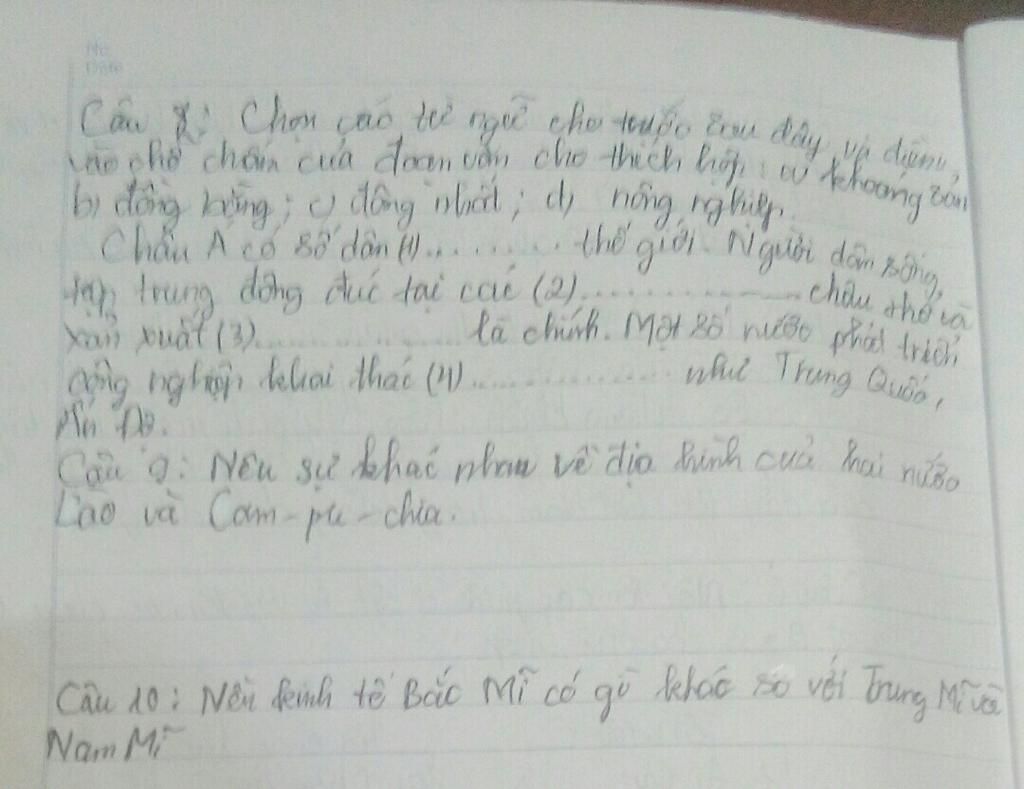 No.
Date
Câu 8: Chọn các từ ngữ cho trước sau đây và điền
vào chỗ chấm của đoạn văn cho thích hợp: a) khoáng sản
b) đồng bằng; c) đông nhất; d) nông nghiệp.
Châu Á có số dân (1)......... thế giới. Người dân sống
tập trung đông đúc tại các (2)............... châu thổ và
xản xuất (3)............... là chính. Một số nước phát triển
công nghiệp khai thác (4)............... như Trung Quốc,
Ấn Độ.
Câu 9: Nêu sự khác nhau về địa hình của hai nước
Lào và Cam-pu-chia.
Câu 10: Nền kinh tế Bắc Mĩ có gì khác so với Trung Mĩ và
Nam Mĩ